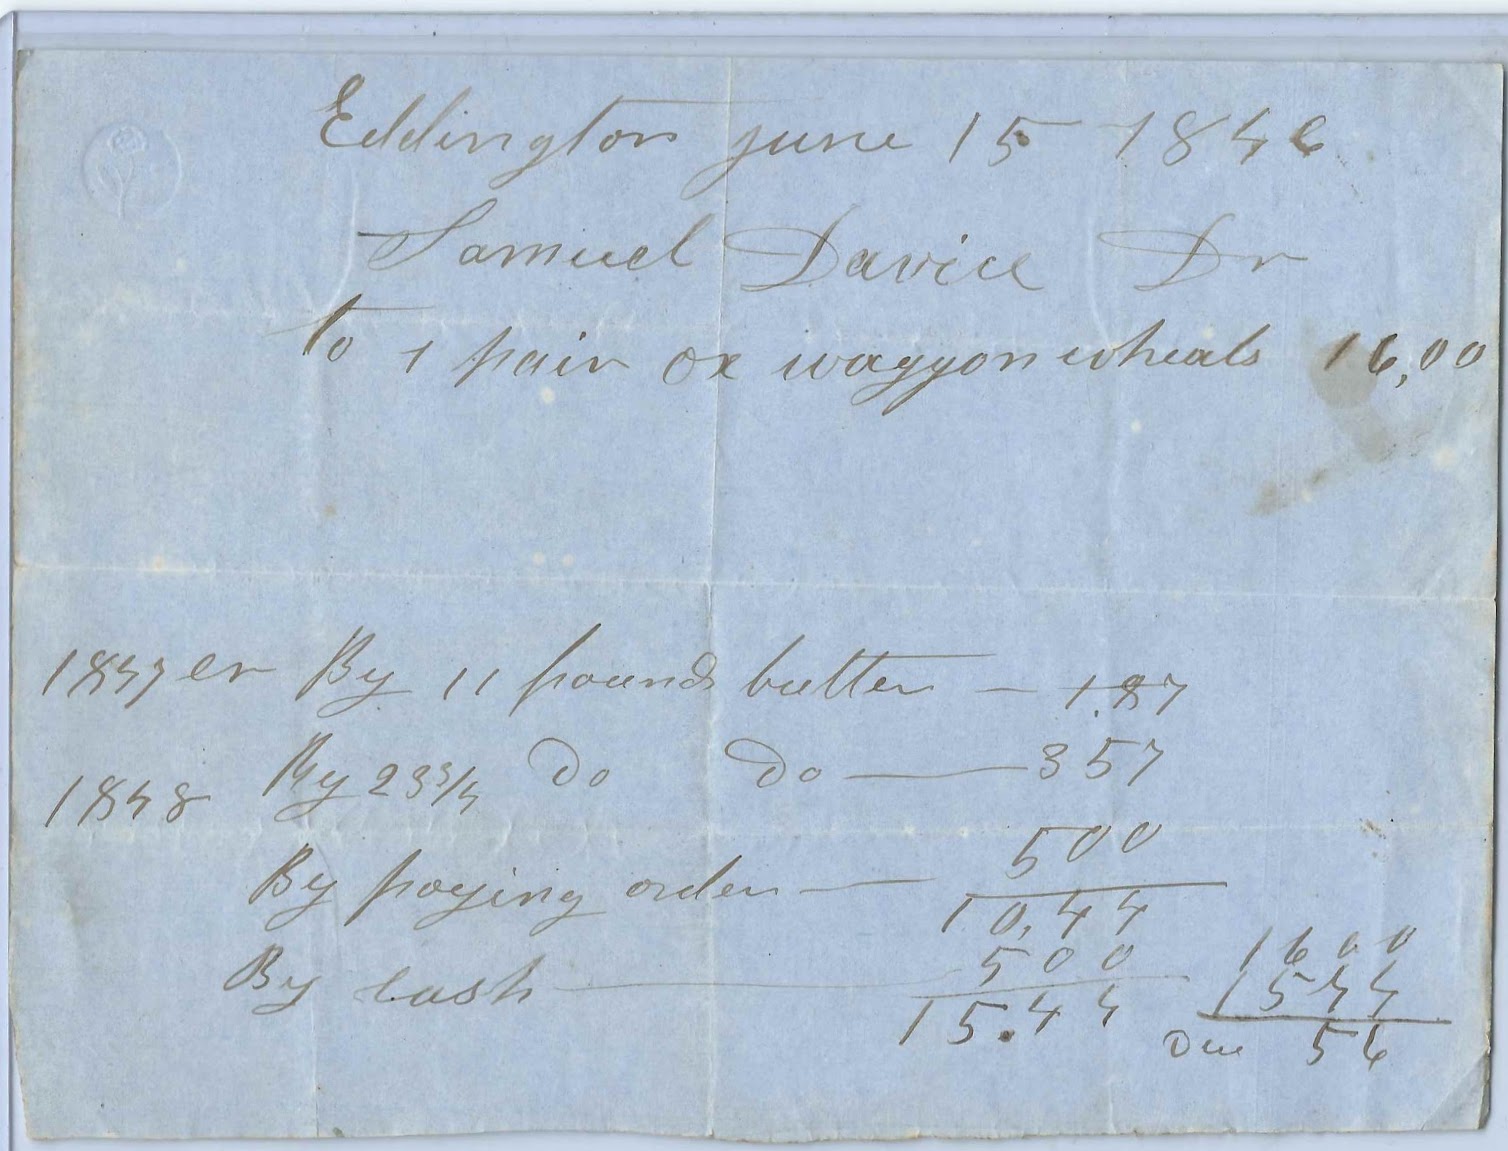 Eddington june 15 1846
Samuel Davice Dr
to 1 pair ox waggon wheals 16,00
1847 cr By 11 pounds butter — 1.87
1848 By 23 3/4 Do Do — 357
By paying order — 500
10,44
By cash — 500
15.44
1600
1544
Due 56